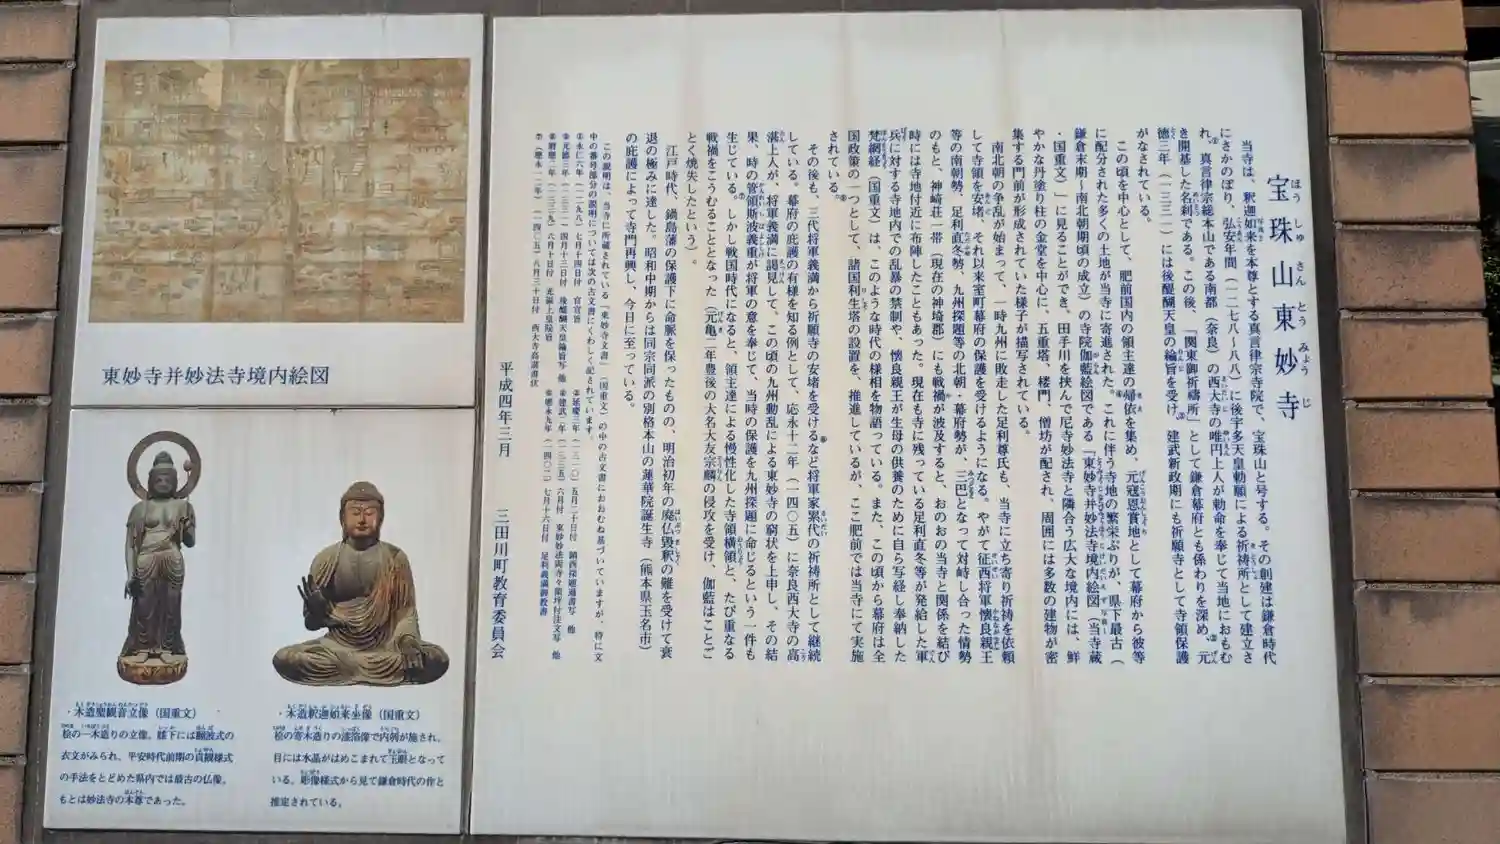 宝珠山東妙寺
ほうしゅさんとうみょうじ
当寺は、釈迦如来を本尊とする真言律宗寺院で、宝珠山と号する。その創建は鎌倉時代
にさかのぼり、弘安年間（一二七八～八八）に後宇多天皇勅願による祈祷所として建立さ
れ、①真言律宗総本山である南都（奈良）の西大寺の唯円上人が勅命を奉じて当地におもむ
き開基した名刹である。この後、「関東御祈祷所」として鎌倉幕府とも係わりを深め、②元
徳三年（一三三一）には後醍醐天皇の綸旨を受け、③建武新政期にも祈願寺として寺領保護
がなされている。
この頃を中心として、肥前国内の領主達の帰依を集め、元寇恩賞地として幕府から彼等
に配分された多くの土地が当寺に寄進された。④これに伴う寺地の繁栄ぶりが、県下最古（
鎌倉末期～南北朝期頃の成立）の寺院伽藍絵図である「東妙寺并妙法寺境内絵図（当寺蔵
・国重文）」に見ることができ、田手川を挟んで尼寺妙法寺と隣合う広大な境内には、鮮
やかな丹塗り柱の金堂を中心に、五重塔、楼門、僧坊が配され、周囲には多数の建物が密
集する門前が形成されていた様子が描写されている。
南北朝の争乱が始まって、一時九州に敗走した足利尊氏も、当寺に立ち寄り祈祷を依頼
して寺領を安堵、それ以来室町幕府の保護を受けるようになる。やがて征西将軍懐良親王
等の南朝勢、足利直冬勢、九州探題等の北朝・幕府勢が、三巴となって対峙し合った情勢
のもと、神崎荘一帯（現在の神埼郡）にも戦禍が波及すると、おのおの当寺と関係を結び
時には寺地付近に布陣したこともあった。現在も寺に残っている足利直冬等が発給した軍
兵に対する寺地内での乱暴の禁制や、懐良親王が生母の供養のために自ら写経し奉納した
梵網経（国重文）は、このような時代の様相を物語っている。また、この頃から幕府は全
国政策の一つとして、諸国利生塔の設置を、推進しているが、ここ肥前では当寺にて実施
されている。⑤
その後も、三代将軍義満から祈願寺の安堵を受ける⑥など将軍家累代の祈祷所として継続
している。幕府の庇護の有様を知る例として、応永十二年（一四〇五）に奈良西大寺の高
湛上人が、将軍義満に謁見して、この頃の九州動乱による東妙寺の窮状を上申し、その結
果、時の管領斯波義重が将軍の意を奉じて、当時の保護を九州探題に命じるという一件も
生じている。⑦しかし戦国時代になると、領主達による慢性化した寺領横領と、たび重なる
戦禍をこうむることとなった（元亀二年豊後の大名大友宗麟の侵攻を受け、伽藍はことご
とく焼失したという）。
江戸時代、鍋島藩の保護下に命脈を保ったものの、明治初年の廃仏毀釈の難を受けて衰
退の極みに達した。昭和中期からは同宗同派の別格本山の蓮華院誕生寺（熊本県玉名市）
の庇護によって寺門再興し、今日に至っている。
この説明は、当寺に所蔵されている「東妙寺文書」（国重文）の中の古文書におおむね基づいていますが、特に文
中の番号部分の説明については次の古文書にくわしく記されています。
①永仁六年（一二九八）七月十四日付　官宣旨
②延慶三年（一三一〇）五月二十日付　鎮西探題過書写　他
③元徳三年（一三三一）四月十三日付　後醍醐天皇綸旨写　他
④建武二年（一三三五）六月付　東妙妙法両寺々領坪付注文写　他
⑤暦應二年（一三三九）六月十日付　光厳上皇院宣
⑥應永九年（一四〇二）七月十六日付　足利義満御教書
⑦（應永一二年）（一四〇五）八月三十日付　西大寺高湛書状
平成四年三月　三田川町教育委員会
東妙寺并妙法寺境内絵図
・木造聖観音立像（国重文）
桧の一木造りの立像。膝下には翻波式の
衣文がみられ、平安時代前期の貞観様式
の手法をとどめた県内では最古の仏像。
もとは妙法寺の本尊であった。
・木造釈迦如来坐像（国重文）
桧の寄木造りの漆箔像で内刳が施され、
目には水晶がはめこまれて玉眼となって
いる。彫像様式から見て鎌倉時代の作と
推定されている。